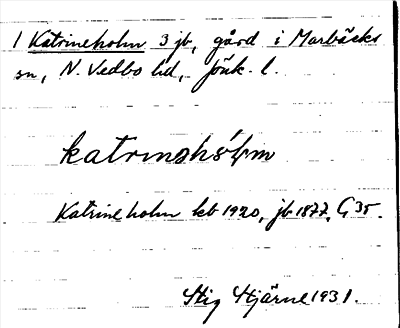 1 Katrineholm 3 jb, gård i Marbäcks
sn, N. Vedbo hd, Jönk. l.
katrinəhólm
Katrineholm kb 1920, jb 1877, G 35.
Stig Hjärne 1931.